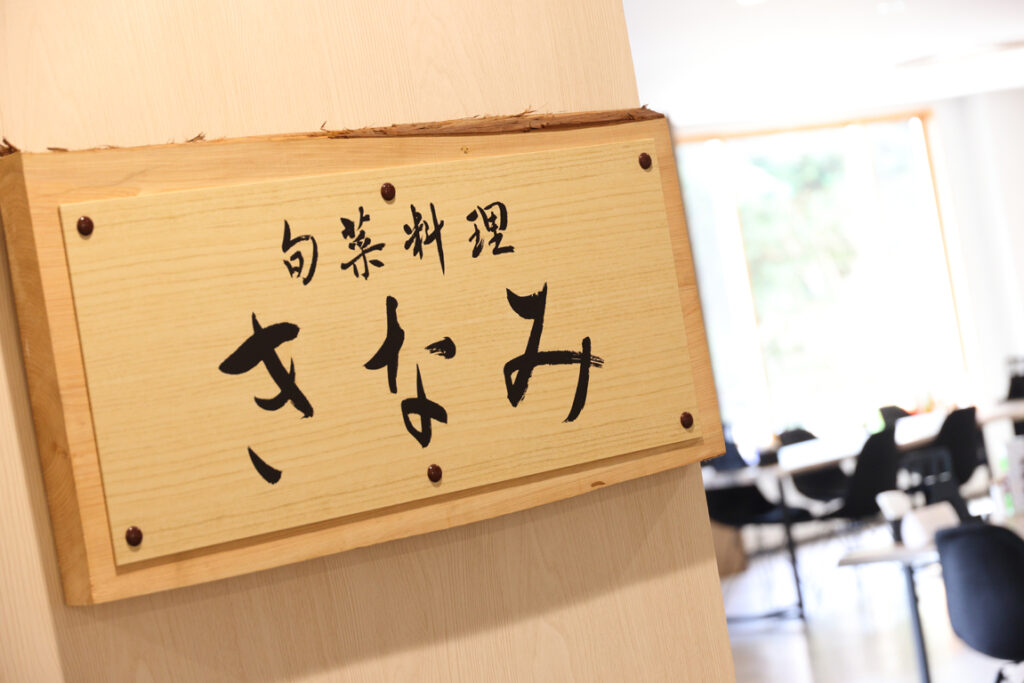 旬菜料理
きなみ